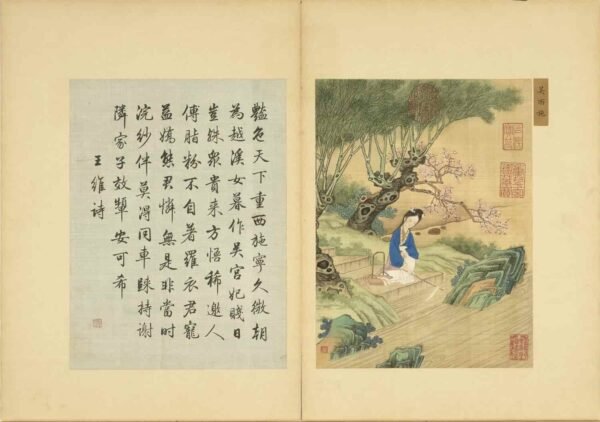 吳西施
豔色天下重西施寧久微朝
為越溪女暮作吳宮妃賤日
豈殊眾貴來方悟稀邀人
傅脂粉不自著羅衣君寵
益嬌態君憐無是非當時
浣紗伴莫得同車歸持謝
隣家子效顰安可希
王維詩